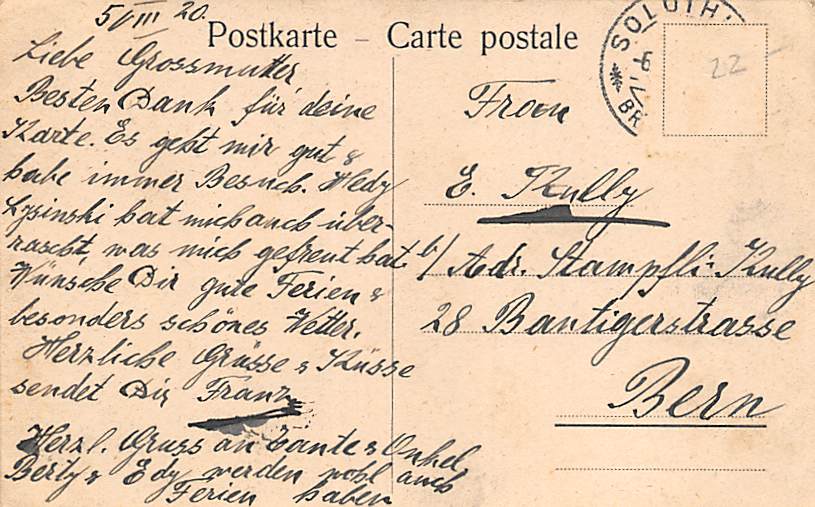 5/VIII 20.
Postkarte – Carte postale
Liebe Grossmutter
Besten Dank für deine
Karte. Es geht mir gut &
habe immer Besuch. Hedy
Lysinski hat mich auch über-
rascht, was mich gefreut hat.
Wünsche Dir gute Ferien &
besonders schönes Wetter.
Herzliche Grüsse & Küsse
sendet Dir Frantz
Herzl. Gruss an Tante & Onkel,
Berty & Edy werden wohl auch
Ferien haben
SOLOTH
BR
22
Frau
E. Kully
b/ Adr. Stampfli-Kully
28 Bantigerstrasse
Bern